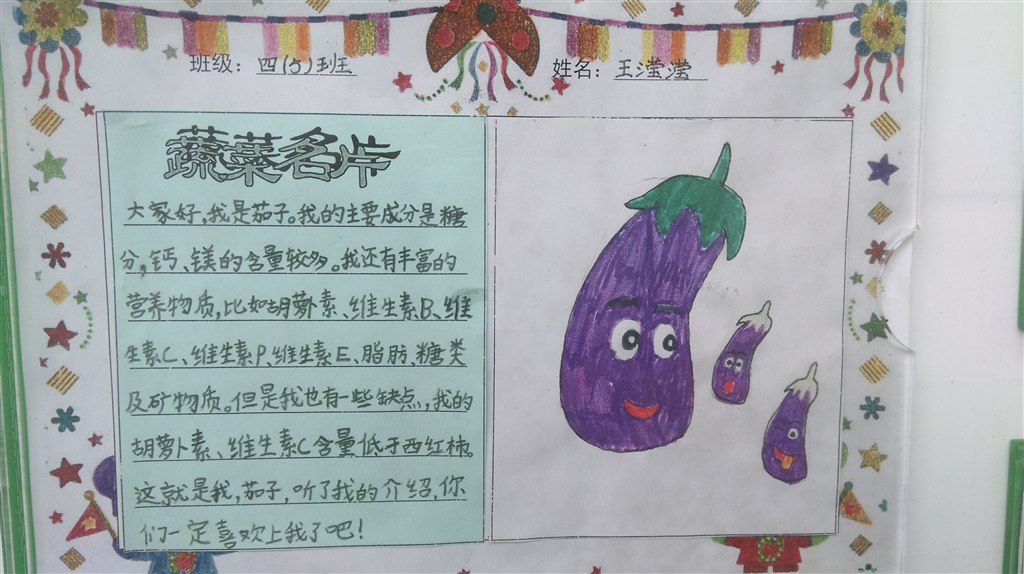 班级：四(5)班
姓名：王滢滢
蔬菜名片
大家好,我是茄子。我的主要成分是糖
分,钙、镁的含量较多。我还有丰富的
营养物质,比如胡萝素、维生素B、维
生素C、维生素P、维生素E、脂肪、糖类
及矿物质。但是我也有一些缺点,我的
胡萝卜素、维生素C含量低于西红柿。
这就是我,茄子,听了我的介绍,你
们一定喜欢上我了吧!